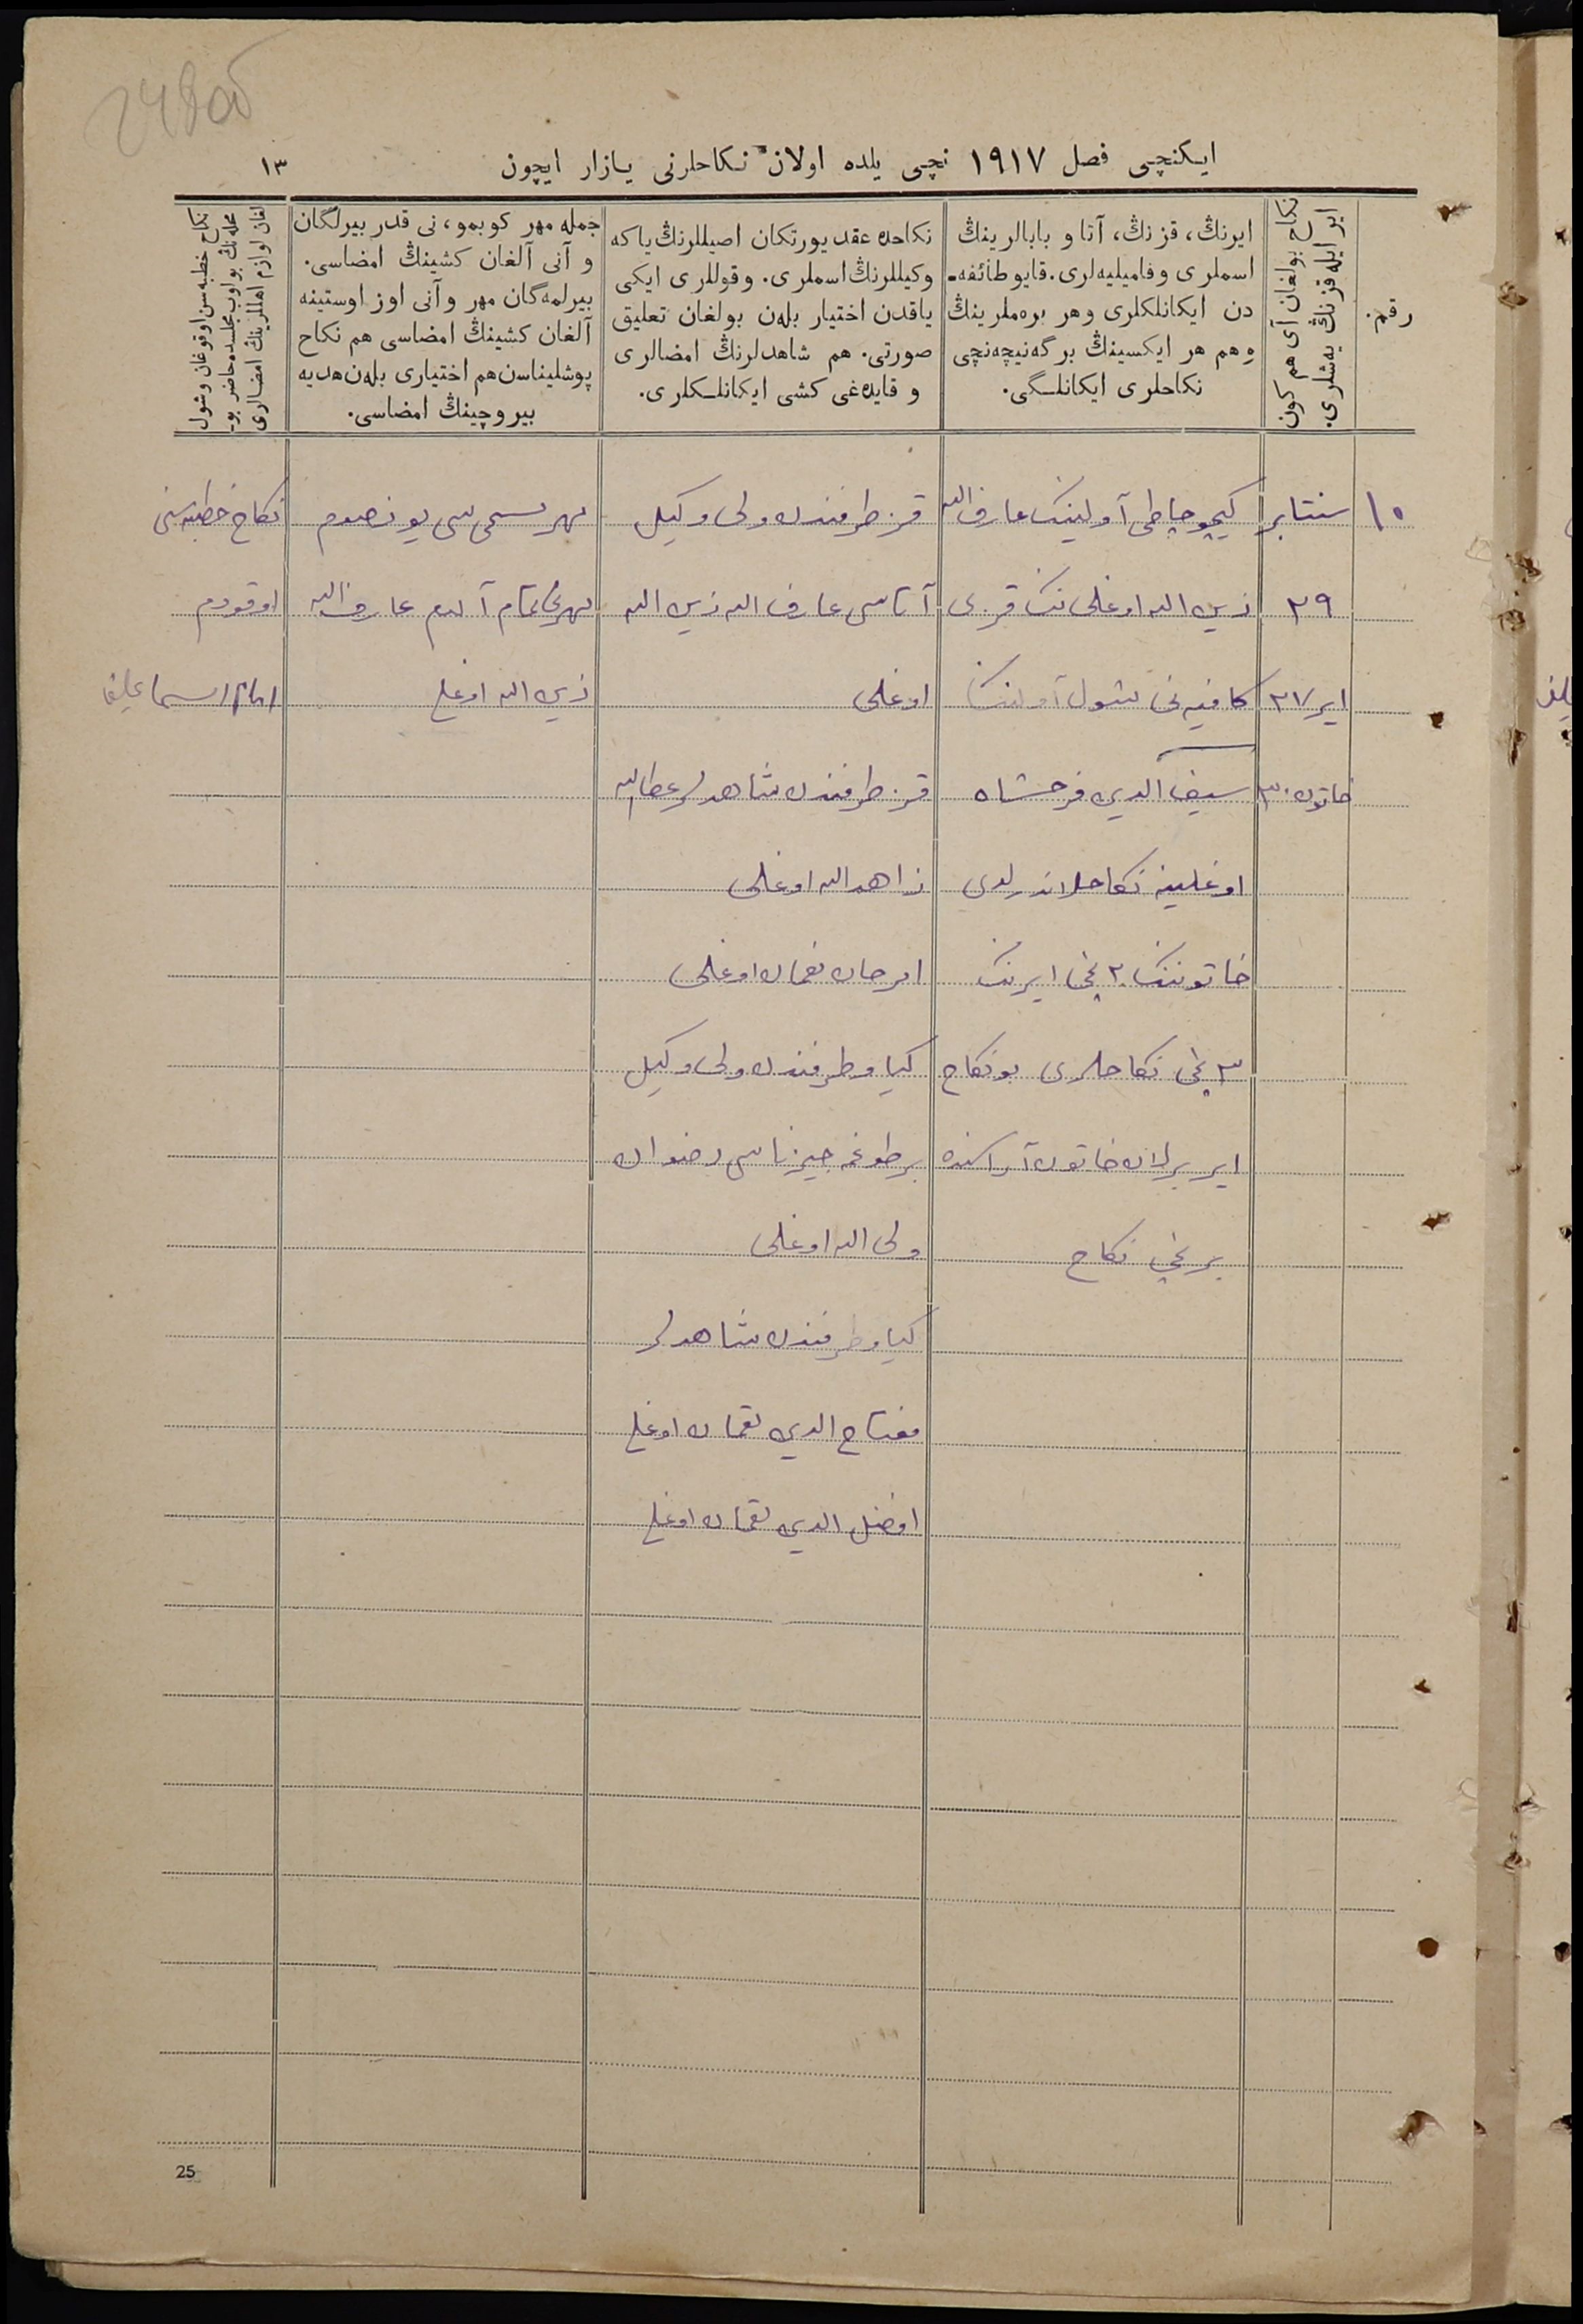 ایکنچی فصل ١٩١٧ نچی یلده اولان نکاحلرنی یازار ایچون
١٣
رقم.
ایر ایله قزنڭ یه‌شلری.
نکاح بولغان آی هم کون
ایرنڭ، قزنڭ، آتا و بابالرینڭ
اسملری و فامیلیه‌لری. قایو طائفه‌ـ
دن ایکانلکلری وهر بره‌ملرینڭ
وهم هر ایکسینڭ برگه نیچه‌نچی
نکاحلری ایکانلـگی.
نکاحده عقد یورتکان اصیللرنڭ یا که
وکیللرنڭ اسملری. وقوللری ایکی
یاقدن اختیار بله‌ن بولغان تعلیق
صورتی. هم شاهدلرنڭ امضالری
و قایده‌غی کشی ایکانلـکلری.
جمله مهر کوبمو، نی قدر بیرلگان
و آنی آلغان کشینڭ امضاسی.
بیرلمه‌گان مهر و آنی اوز اوستینه
آلغان کشینڭ امضاسی هم نکاح
پوشلیناسن هم اختیاری بله‌ن هدیه
بیروچینڭ امضاسی.
نکاح خطبه‌سن اوقوغان وشول
محله‌نڭ بولوب مجلسده حاضر بو‌ـ
لغان لوازم اهللرینڭ امضالری
١٠
سنتابر
٢٩
ایر ٢٧
خاتون ٣٠
کیچو چاطی آولینڭ عارف الله
زین الله اوغلی ننڭ قزی
کافیه نی شول آولننڭ
سیف الدین فرحشاه
اوغلینه نکاحلاندرلدی
خاتوننڭ ٢ نچی ایرننڭ
٣ نچی نکاحلری بو نکاح
ایر برلان خاتون آراسنده
برنچی نکاح
قز طرفندن ولی وکیل
آتاسی عارف الله زین الله
اوغلی
قز طرفندن شاهدلر عطاالله
زاهد الله اوغلی
نعمان اوغلی
کیاو طرفندن ولی وکیل
برطوغمه رضوان
ولی الله اوغلی
کیاو طرفندن شاهدلر
مفتاح الدین لقمان اوغلی
افضل الدین لقمان اوغلی
مهر مسمی سی یوز صوم
مهرنی تمام آلدم عارف الله
زین الله اوغلی
نکاح خطبه سنی
اوقودم
امام اسماعیلف
25